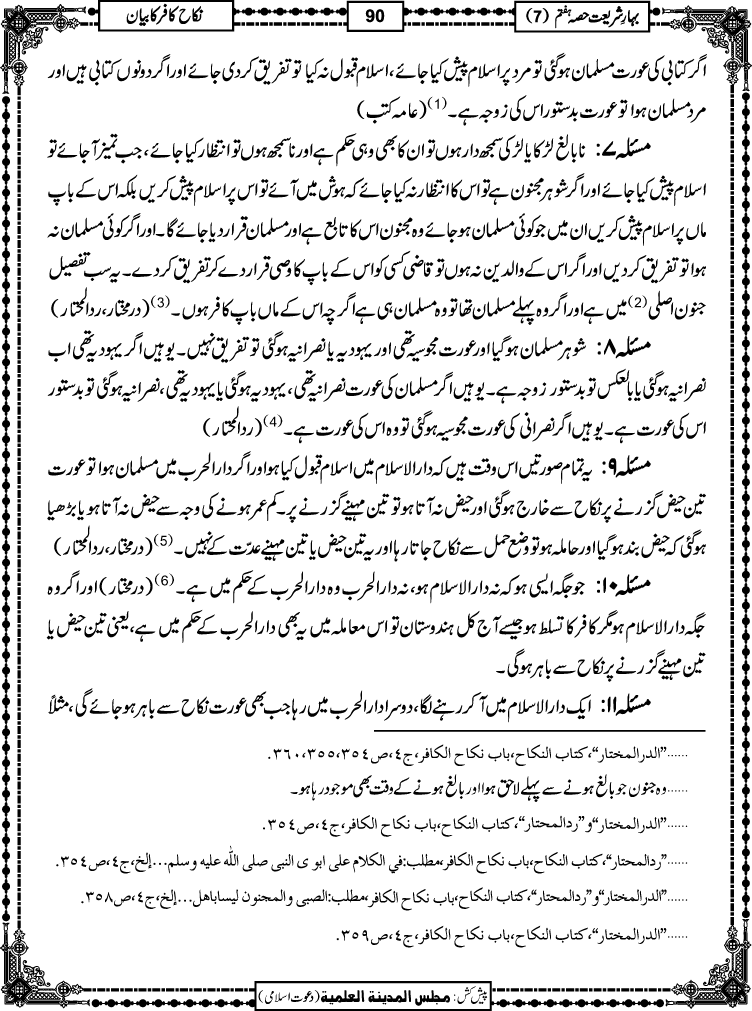 بہارِ شریعت حصہ ہفتم (7)
90
نکاح کافر کا بیان
اگر کتابی کی عورت مسلمان ہوگئی تو مرد پر اسلام پیش کیا جائے، اسلام قبول نہ کیا تو تفریق کردی جائے اور اگر دونوں کتابی ہیں اور
مرد مسلمان ہوا تو عورت بدستور اس کی زوجہ ہے۔(1) (عامہ کتب)
مسئلہ ۷: نابالغ لڑکا یا لڑکی سمجھ دار ہوں تو ان کا بھی وہی حکم ہے اور ناسمجھ ہوں تو انتظار کیا جائے، جب تمیز آجائے تو
اسلام پیش کیا جائے اور اگر شوہر مجنون ہے تو اس کا انتظار نہ کیا جائے کہ ہوش میں آئے تو اس پر اسلام پیش کریں بلکہ اس کے باپ
ماں پر اسلام پیش کریں ان میں جو کوئی مسلمان ہوجائے وہ مجنون اس کا تابع ہے اور مسلمان قرار دیا جائے گا۔ اور اگر کوئی مسلمان نہ
ہوا تو تفریق کردیں اور اگر اس کے والدین نہ ہوں تو قاضی کسی کو اس کے باپ کا وصی قرار دے کر تفریق کردے۔ یہ سب تفصیل
جنون اصلی(2) میں ہے اور اگر وہ پہلے مسلمان تھا تو وہ مسلمان ہی ہے اگرچہ اس کے ماں باپ کافر ہوں۔(3) (درمختار، ردالمحتار)
مسئلہ ۸: شوہر مسلمان ہوگیا اور عورت مجوسیہ تھی اور یہودیہ یا نصرانیہ ہوگئی تو تفریق نہیں۔ یوہیں اگر یہودیہ تھی اب
نصرانیہ ہوگئی یا بالعکس تو بدستور زوجہ ہے۔ یوہیں اگر مسلمان کی عورت نصرانیہ تھی، یہودیہ ہوگئی یا یہودیہ تھی، نصرانیہ ہوگئی تو بدستور
اس کی عورت ہے۔ یوہیں اگر نصرانی کی عورت مجوسیہ ہوگئی تو وہ اس کی عورت ہے۔(4) (ردالمحتار)
مسئلہ ۹: یہ تمام صورتیں اس وقت ہیں کہ دارالاسلام میں اسلام قبول کیا ہو اور اگر دارالحرب میں مسلمان ہوا تو عورت
تین حیض گزرنے پر نکاح سے خارج ہوگئی اور حیض نہ آتا ہو تو تین مہینے گزرنے پر۔ کم عمر ہونے کی وجہ سے حیض نہ آتا ہو یا بڑھیا
ہوگئی کہ حیض بند ہوگیا اور حاملہ ہو تو وضع حمل سے نکاح جاتا رہا اور یہ تین حیض یا تین مہینے عدّت کے نہیں۔(5) (درمختار، ردالمحتار)
مسئلہ ۱۰: جو جگہ ایسی ہو کہ نہ دارالاسلام ہو، نہ دارالحرب وہ دارالحرب کے حکم میں ہے۔(6) (درمختار) اور اگر وہ
جگہ دارالاسلام ہو مگر کافر کا تسلط ہو جیسے آج کل ہندوستان تو اس معاملہ میں یہ بھی دارالحرب کے حکم میں ہے، یعنی تین حیض یا
تین مہینے گزرنے پر نکاح سے باہر ہوگی۔
مسئلہ ۱۱: ایک دارالاسلام میں آکر رہنے لگا، دوسرا دارالحرب میں رہا جب بھی عورت نکاح سے باہر ہوجائے گی، مثلاً
......”الدرالمختار“، کتاب النکاح، باب نکاح الکافر، ج٤، ص٣٥٤، ٣٥٥، ٣٦٠.
......وہ جنون جو بالغ ہونے سے پہلے لاحق ہوا اور بالغ ہونے کے وقت بھی موجود رہا ہو۔
......”الدرالمختار“ و ”ردالمحتار“، کتاب النکاح، باب نکاح الکافر، ج٤، ص٣٥٤.
......”ردالمحتار“، کتاب النکاح، باب نکاح الکافر، مطلب: في الکلام علی ابو ی النبی صلی اللّٰه علیه وسلم...إلخ، ج٤، ص٣٥٤.
......”الدرالمختار“ و ”ردالمحتار“، کتاب النکاح، باب نکاح الکافر، مطلب: الصبی والمجنون لیسا باهل...إلخ، ج٤، ص٣٥٨.
......”الدرالمختار“، کتاب النکاح، باب نکاح الکافر، ج٤، ص٣٥٩.
پیش کش: مجلس المدینة العلمیة (دعوت اسلامی)